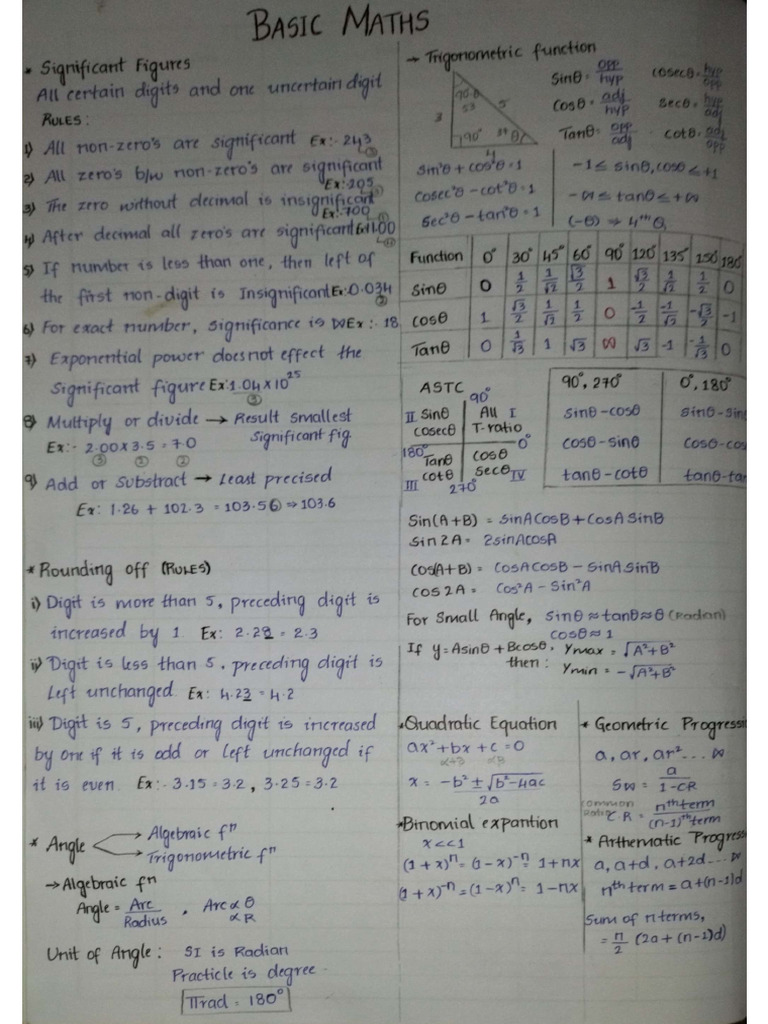 BASIC MATHS
* Significant Figures
All certain digits and one uncertain digit
RULES:
1) All non-zero's are significant Ex:- 243 ③
2) All zero's b/w non-zero's are significant
Ex:- 205 ③
3) The zero without decimal is insignificant
Ex:- 700 ①
4) After decimal all zero's are significant Ex:- 1.00 ③
5) If number is less than one, then left of
the first non-digit is Insignificant Ex:- 0.034 ②
6) For exact number, significance is ∞ Ex:- 18
7) Exponential power does not effect the
Significant figure Ex: 1.04 × 10²⁵ ③
8) Multiply or divide → Result smallest
Significant fig
Ex:- 2.00 × 3.5 = 7.0
③ ② ②
9) Add or Substract → Least precised
Ex: 1.26 + 102.3 = 103.5⑥ ⇒ 103.6
* Rounding off (RULES)
i) Digit is more than 5, preceding digit is
increased by 1. Ex: 2.28 = 2.3
ii) Digit is less than 5, preceding digit is
Left unchanged. Ex: 4.23 = 4.2
iii) Digit is 5, preceding digit is increased
by one if it is odd or left unchanged if
it is even. Ex:- 3.15 = 3.2, 3.25 = 3.2
* Angle → Algebraic fⁿ
→ Trigonometric fⁿ
→ Algebraic fⁿ
Angle = Arc / Radius, Arc ∝ θ
∝ R
Unit of Angle: SI is Radian
Practicle is degree.
πrad = 180°
→ Trigonometric function
90-θ
53
5
3
90°
37 θ
4
Sinθ = opp/hyp cosecθ = hyp/opp
Cosθ = adj/hyp secθ = hyp/adj
Tanθ = opp/adj cotθ = adj/opp
Sin²θ + cos²θ = 1
Cosec²θ - cot²θ = 1
Sec²θ - tan²θ = 1
-1 ≤ sinθ, cosθ ≤ +1
-∞ ≤ tanθ ≤ +∞
(-θ) ⇒ 4ᵗʰ Q
Function 0° 30° 45° 60° 90° 120° 135° 150° 180°
Sinθ 0 1/2 1/√2 √3/2 1 √3/2 1/√2 1/2 0
cosθ 1 √3/2 1/√2 1/2 0 -1/2 -1/√2 -√3/2 -1
Tanθ 0 1/√3 1 √3 ∞ √3 -1 -1/√3 0
ASTC
90°
II Sinθ All I
cosecθ T-ratio
180° 0°
Tanθ cosθ
cotθ secθ IV
III 270°
90°, 270° 0°, 180°
sinθ - cosθ sinθ - sin
cosθ - sinθ cosθ - cos
tanθ - cotθ tanθ - ta
Sin(A+B) = SinA CosB + CosA SinB
Sin2A = 2sinAcosA
Cos(A+B) = CosA CosB - SinA SinB
Cos2A = Cos²A - Sin²A
For Small Angle, Sinθ ≈ tanθ ≈ θ (Radian)
cosθ ≈ 1
If y = Asinθ + Bcosθ, Ymax = √A²+B²
then: Ymin = -√A²+B²
* Quadratic Equation
ax² + bx + c = 0
x = -b² ± √b²-4ac / 2a
* Binomial expantion
x << 1
(1+x)ⁿ = (1-x)⁻ⁿ = 1+nx
(1+x)⁻ⁿ = (1-x)ⁿ = 1-nx
* Geometric Progressi
a, ar, ar² ... ∞
S∞ = a / 1-CR
common Ratio C.R = nᵗʰ term / (n-1)ᵗʰ term
* Arthematic Progress
a, a+d, a+2d ... ∞
nᵗʰ term = a+(n-1)d
Sum of n terms,
= n/2 (2a+(n-1)d)